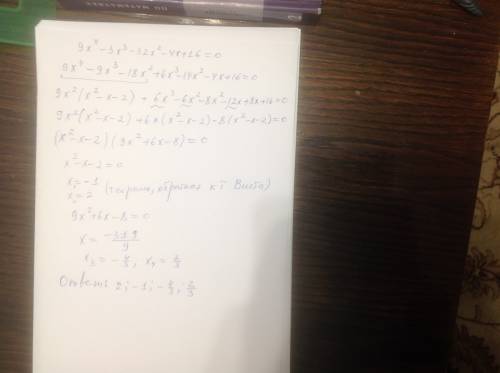 9x⁴-3x³-32x²-4x+16=0
9x⁴-9x³-18x²+6x³-14x²-4x+16=0
9x²(x²-x-2)+6x³-6x²-8x²-12x+8x+16=0
9x²(x²-x-2)+6x(x²-x-2)-8(x²-x-2)=0
(x²-x-2)(9x²+6x-8)=0
x²-x-2=0
x₁=-1
x₂=2 (теорема, обратная к т Виета)
9x²+6x-8=0
x=(-3±9)/9
x₃=-4/3, x₄=2/3
Ответ: 2; -1; -4/3; 2/3